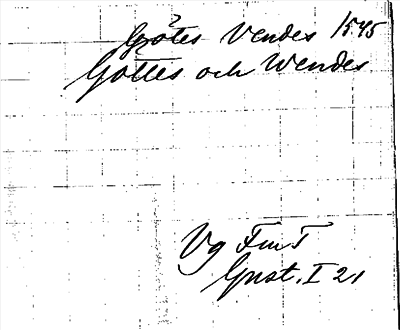 Götes Vendes 1545
Göttes och Wendes
Vg FmT
Gust. I 21